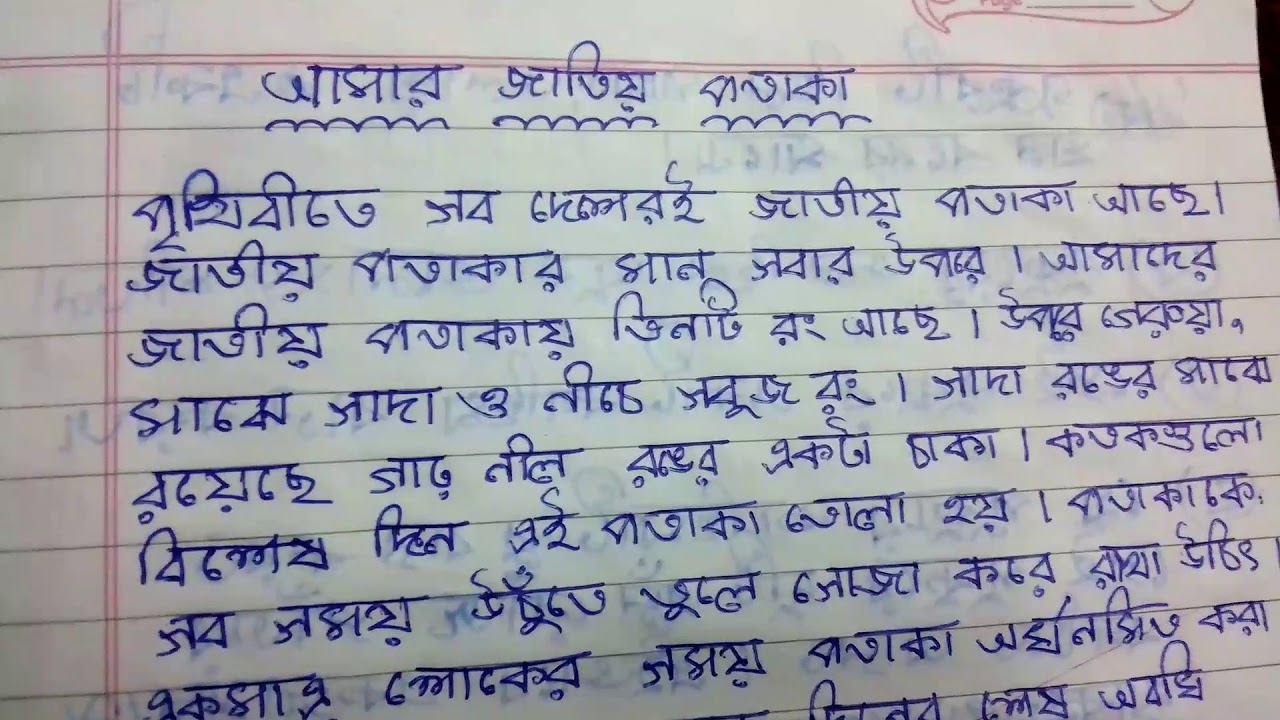 আমার জাতিয় পতাকা
পৃথিবীতে সব দেশেরই জাতীয় পতাকা আছে।
জাতীয় পতাকার মান সবার উপরে। আমাদের
জাতীয় পতাকায় তিনটি রং আছে। উপরে গেরুয়া,
মাঝে সাদা ও নীচে সবুজ রং। সাদা রঙের মাঝে
রয়েছে গাঢ় নীল রঙের একটা চাকা। কতকগুলো
বিশেষ দিনে এই পতাকা তোলা হয়। পতাকাকে
সব সময় উঁচুতে তুলে সোজা করে রাখা উচিৎ।
একমাত্র শোকের সময় পতাকা অর্ধনমিত করা
দিনের শেষ অবধি